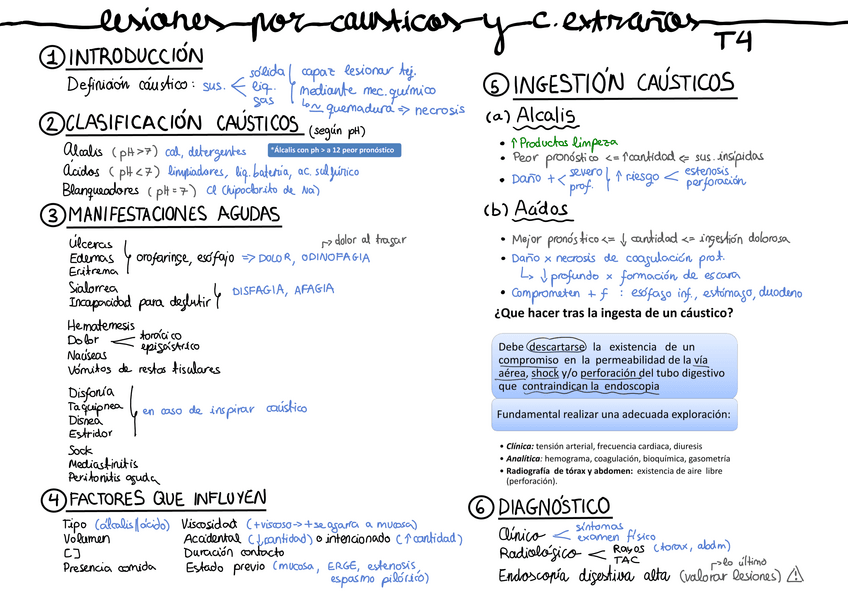 lesiones por causticos y c. extraños
T4
① INTRODUCCIÓN
Definición cáustico: sus. < sólida
liq.
gas
capaz lesionar tej.
mediante mec. químico
↳ ~ quemadura => necrosis
② CLASIFICACIÓN CAÚSTICOS (según pH)
Álcalis (pH>7) cal, detergentes
*Álcalis con ph > a 12 peor pronóstico
Ácidos (pH<7) limpiadores, liq. batería, ac. sulfúrico
Blanqueadores (pH=7) Cl (hipoclorito de Na)
③ MANIFESTACIONES AGUDAS
Úlceras
Edemas
Eritema
orofaringe, esófajo => DOLOR, ODINOFAGIA
↱ dolor al tragar
Sialorrea
Incapacidad para deglutir
DISFAGIA, AFAGIA
Hematemesis
Dolor < torácico
epigástrico
Naúseas
Vómitos de restos tisulares
Disfonía
Taquipnea
Disnea
Estridor
en caso de inspirar caústico
Sock
Mediastinitis
Peritonitis aguda
④ FACTORES QUE INFLUYEN
Tipo (álcalis//ácido)
Volumen
[ ]
Presencia comida
Viscosidad (+viscoso -> + se agarra a mucosa)
Accidental (↓cantidad) o intencionado (↑cantidad)
Duración contacto
Estado previo (mucosa, ERGE, estenosis
espasmo pilórico)
⑤ INGESTIÓN CAÚSTICOS
(a) Alcalis
• ↑ Productos limpeza
• Peor pronóstico <= ↑cantidad <= sus. insípidas
• Daño + < severo
prof.
↑ riesgo < estenosis
perforación
(b) Acidos
• Mejor pronóstico <= ↓ cantidad <= ingestión dolorosa
• Daño x necrosis de coagulación prot.
↳ ↓ profundo x formación de escara
• Comprometen + f : esófago inf., estómago, duodeno
¿Que hacer tras la ingesta de un cáustico?
Debe descartarse la existencia de un
compromiso en la permeabilidad de la vía
aérea, shock y/o perforación del tubo digestivo
que contraindican la endoscopia
Fundamental realizar una adecuada exploración:
• Clínica: tensión arterial, frecuencia cardiaca, diuresis
• Analítica: hemograma, coagulación, bioquímica, gasometría
• Radiografía de tórax y abdomen: existencia de aire libre
(perforación).
⑥ DIAGNÓSTICO
Clínico < síntomas
examen físico
Radiológico < Rayos (torax, abdm)
TAC
↱ lo último
Endoscopía digestiva alta (valorar lesiones) ⚠